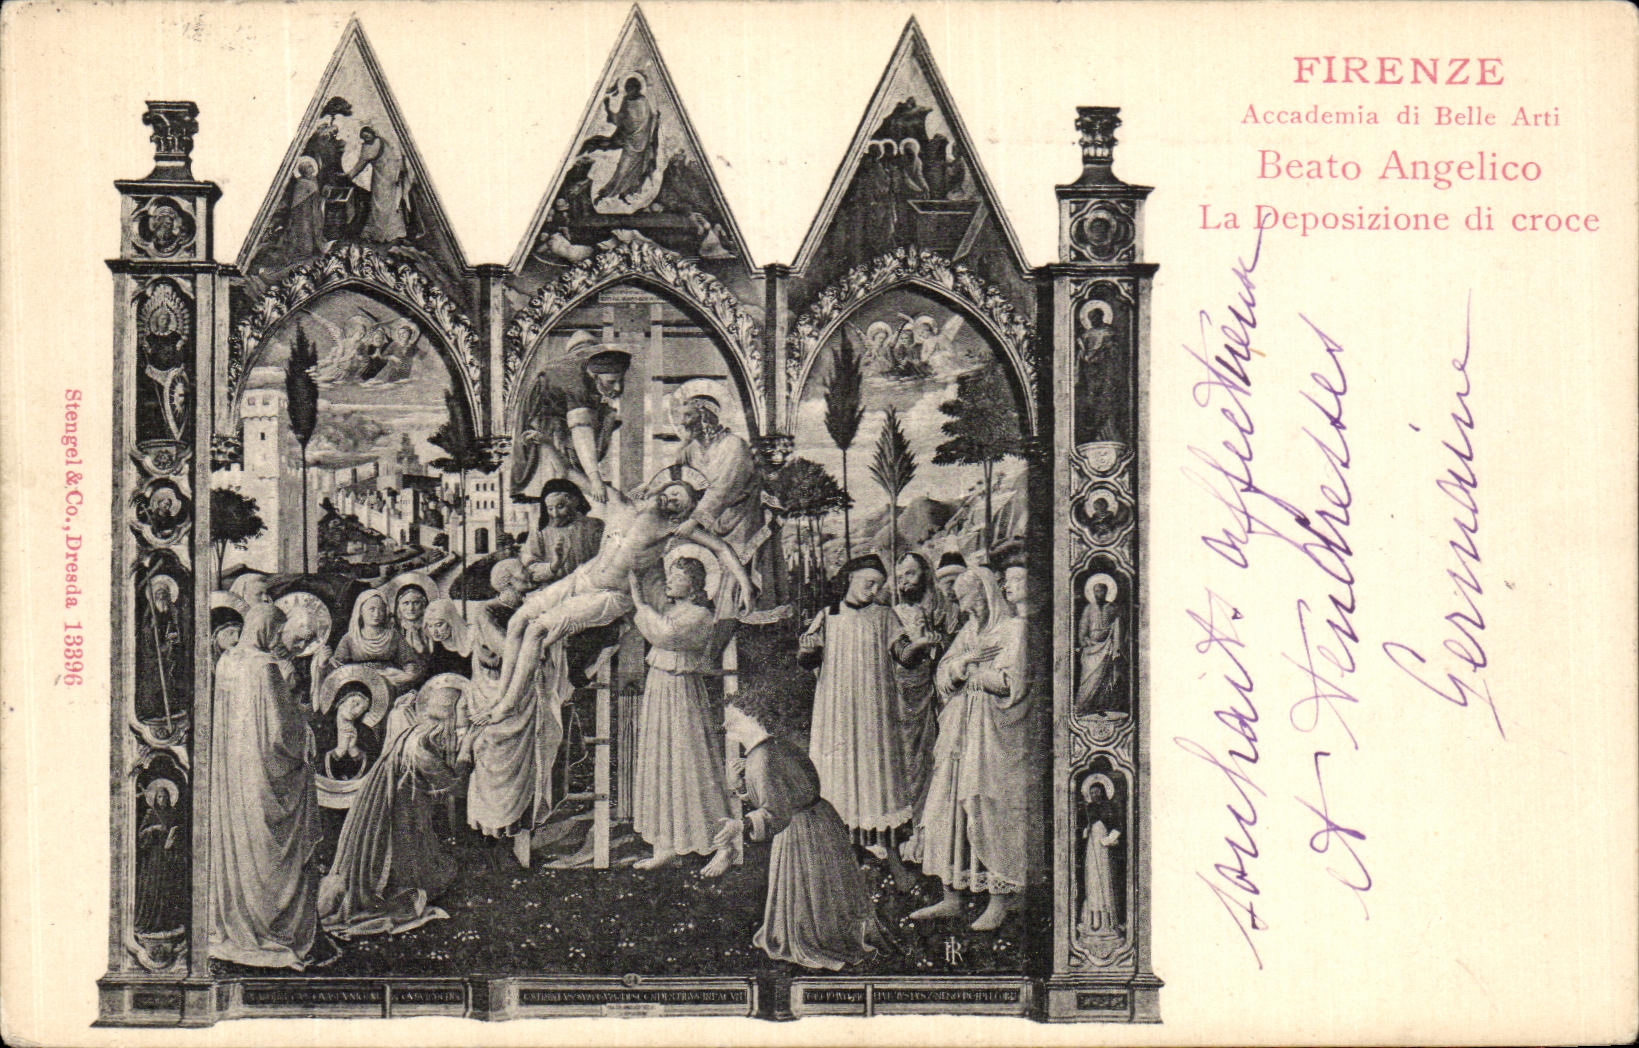 FIRENZE
Accademia di Belle Arti
Beato Angelico
La Deposizione di croce
Stengel & Co., Dresda 13396
souhaits affectueux
et tendresses
Germaine